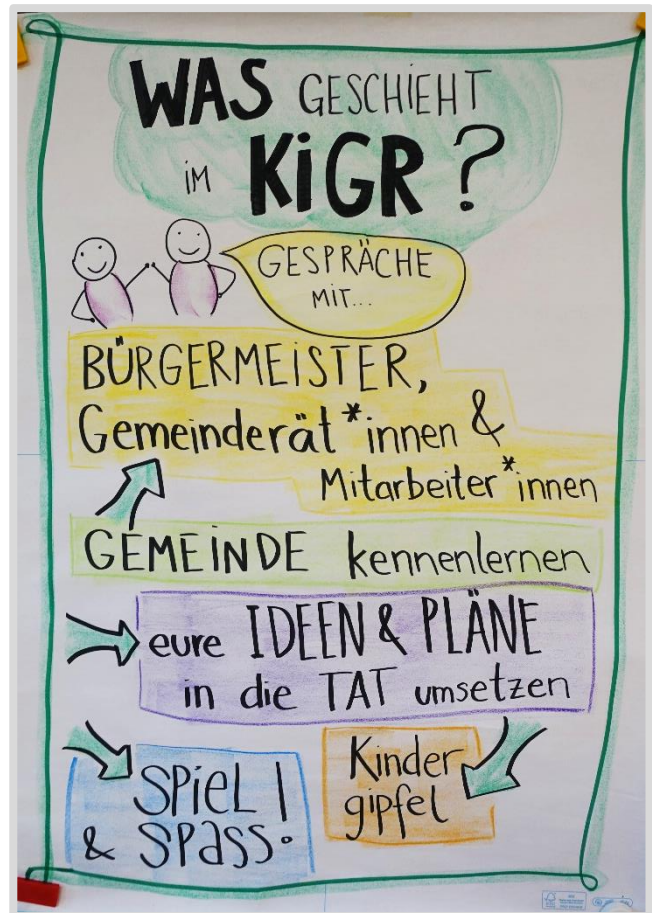 WAS GESCHIEHT
IM KiGR?
GESPRÄCHE
MIT...
BÜRGERMEISTER,
Gemeinderät*innen &
Mitarbeiter*innen
GEMEINDE kennenlernen
eure IDEEN & PLÄNE
in die TAT umsetzen
SPIEL
& SPASS!
Kinder
gipfel